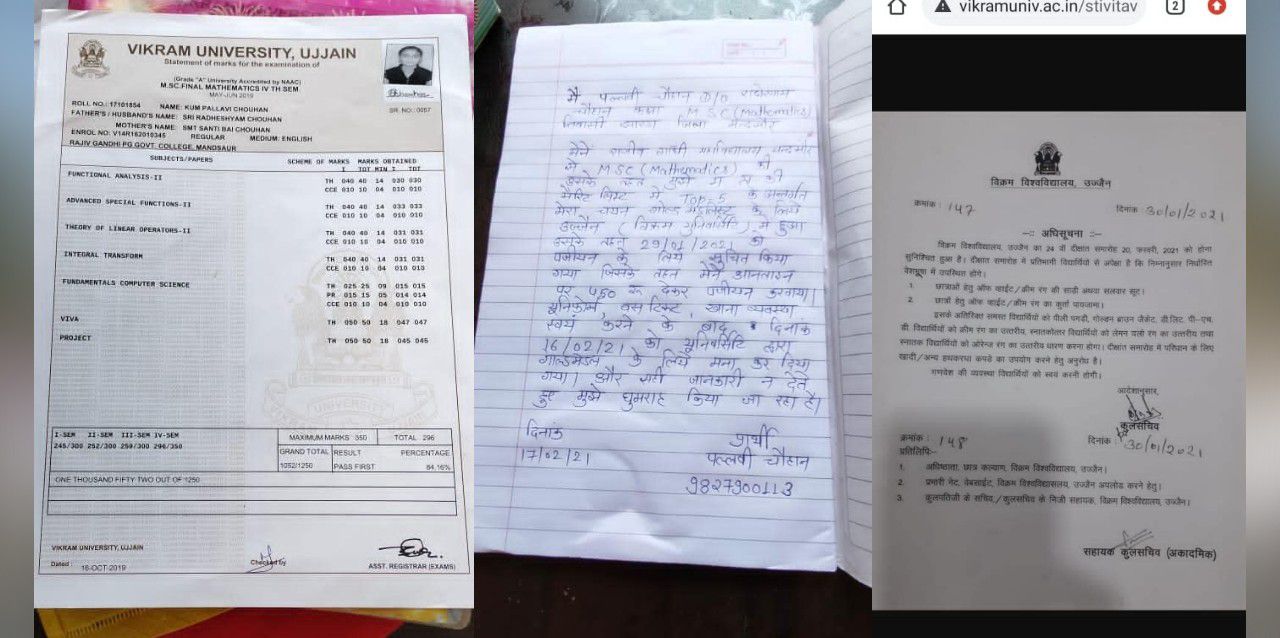 VIKRAM UNIVERSITY, UJJAIN
Statement of marks for the examination of
(Grade "A" University Accredited by NAAC)
M.SC.FINAL MATHEMATICS IV TH SEM
MAY-JUN 2019
ROLL NO.: 17101854 NAME: KUM PALLAVI CHOUHAN SR.NO.:0057
FATHER'S / HUSBAND'S NAME: SRI RADHESHYAM CHOUHAN
MOTHER'S NAME: SMT SANTI BAI CHOUHAN
ENROL NO: V14R162010345 REGULAR MEDIUM: ENGLISH
RAJIV GANDHI PG GOVT. COLLEGE, MANDSAUR
SUBJECTS/PAPERS SCHEME OF MARKS MARKS OBTAINED
I TOT MIN I TOT
FUNCTIONAL ANALYSIS-II
TH 040 40 14 030 030
CCE 010 10 04 010 010
ADVANCED SPECIAL FUNCTIONS-II
TH 040 40 14 033 033
CCE 010 10 04 010 010
THEORY OF LINEAR OPERATORS-II
TH 040 40 14 031 031
CCE 010 10 04 010 010
INTEGRAL TRANSFORM
TH 040 40 14 031 031
CCE 010 10 04 010 010
FUNDAMENTALS COMPUTER SCIENCE
TH 025 25 09 015 015
PR 015 15 05 014 014
CCE 010 10 04 010 010
VIVA
TH 050 50 18 047 047
PROJECT
TH 050 50 18 045 045
I-SEM II-SEM III-SEM IV-SEM
245/300 252/300 259/300 296/350
MAXIMUM MARKS 350 TOTAL 296
GRAND TOTAL RESULT PERCENTAGE
1052/1250 PASS FIRST 84.16%
ONE THOUSAND FIFTY TWO OUT OF 1250
VIKRAM UNIVERSITY, UJJAIN
Dated : 16-OCT-2019 Checked by ASST. REGISTRAR (EXAMS)
मैं पल्लवी चौहान D/O राधेश्याम
चौहान कक्षा M.SC (Mathematics)
निवासी जिला मन्दसौर
मैंने राजीव गांधी महाविद्यालय मन्दसौर
से M.SC (Mathematics) की
उसके तहत मुझे
मेरिट लिस्ट में TOP-5 के अन्तर्गत
मेरा चयन गोल्ड मेडलिस्ट के लिये
उज्जैन (विक्रम युनिवर्सिटी) में हुआ
उसके तहत 29/01/2021 को
पंजीयन के लिये सूचित किया
गया जिसके तहत मैंने आनलाइन
पर 450 रू देकर पंजीयन करवाया।
यूनिफोर्म, बस टिकट, खाना व्यवस्था
स्वयं करने के बाद दिनांक
16/02/21 को युनिवर्सिटी द्वारा
गोल्डमेडल के लिये मना कर दिया
गया। और सही जानकारी न देते
हुए मुझे घुमराह किया जा रहा है।
दिनांक प्रार्थी
17/02/21 पल्लवी चौहान
9827900113
vikramuniv.ac.in/stivitav 2
विक्रम विश्वविद्यालय, उज्जैन
क्रमांक : 147 दिनांक 30/01/2021
-: अधिसूचना :-
विक्रम विश्वविद्यालय, उज्जैन का 24 वां दीक्षांत समारोह 20, फरवरी, 2021 को होना
सुनिश्चित हुआ है। दीक्षांत समारोह में प्रतिभागी विद्यार्थियों से अपेक्षा है कि निम्नानुसार निर्धारित
वेशभूषा में उपस्थित होंगे।
1. छात्राओं हेतु ऑफ व्हाईट / क्रीम रंग की साड़ी अथवा सलवार सूट।
2. छात्रों हेतु ऑफ व्हाईट / क्रीम रंग का कुर्ता पायजामा।
इसके अतिरिक्त समस्त विद्यार्थियों को पीली पगड़ी, गोल्डन ब्राउन जैकेट, डी.लिट. पी-एच.
डी. विद्यार्थियों को क्रीम रंग का उत्तरीय, स्नातकोत्तर विद्यार्थियों को लेमन यलो रंग का उत्तरीय तथा
स्नातक विद्यार्थियों को ओरेन्ज रंग का उत्तरीय धारण करना होगा। दीक्षांत समारोह में परिधान के लिए
खादी / अन्य हथकरघा कपड़े का उपयोग करने हेतु अनुरोध है।
गणवेश की व्यवस्था विद्यार्थियों को स्वयं करनी होगी।
आदेशानुसार,
कुलसचिव
क्रमांक : 148 दिनांक : 30/01/2021
प्रतिलिपि:-
1. अधिष्ठाता, छात्र कल्याण, विक्रम विश्वविद्यालय, उज्जैन।
2. प्रभारी नेट, वेबसाईट, विक्रम विश्वविद्यालय, उज्जैन अपलोड करने हेतु।
3. कुलपतिजी के सचिव / कुलसचिव के निजी सहायक, विक्रम विश्वविद्यालय, उज्जैन।
सहायक कुलसचिव (अकादमिक)